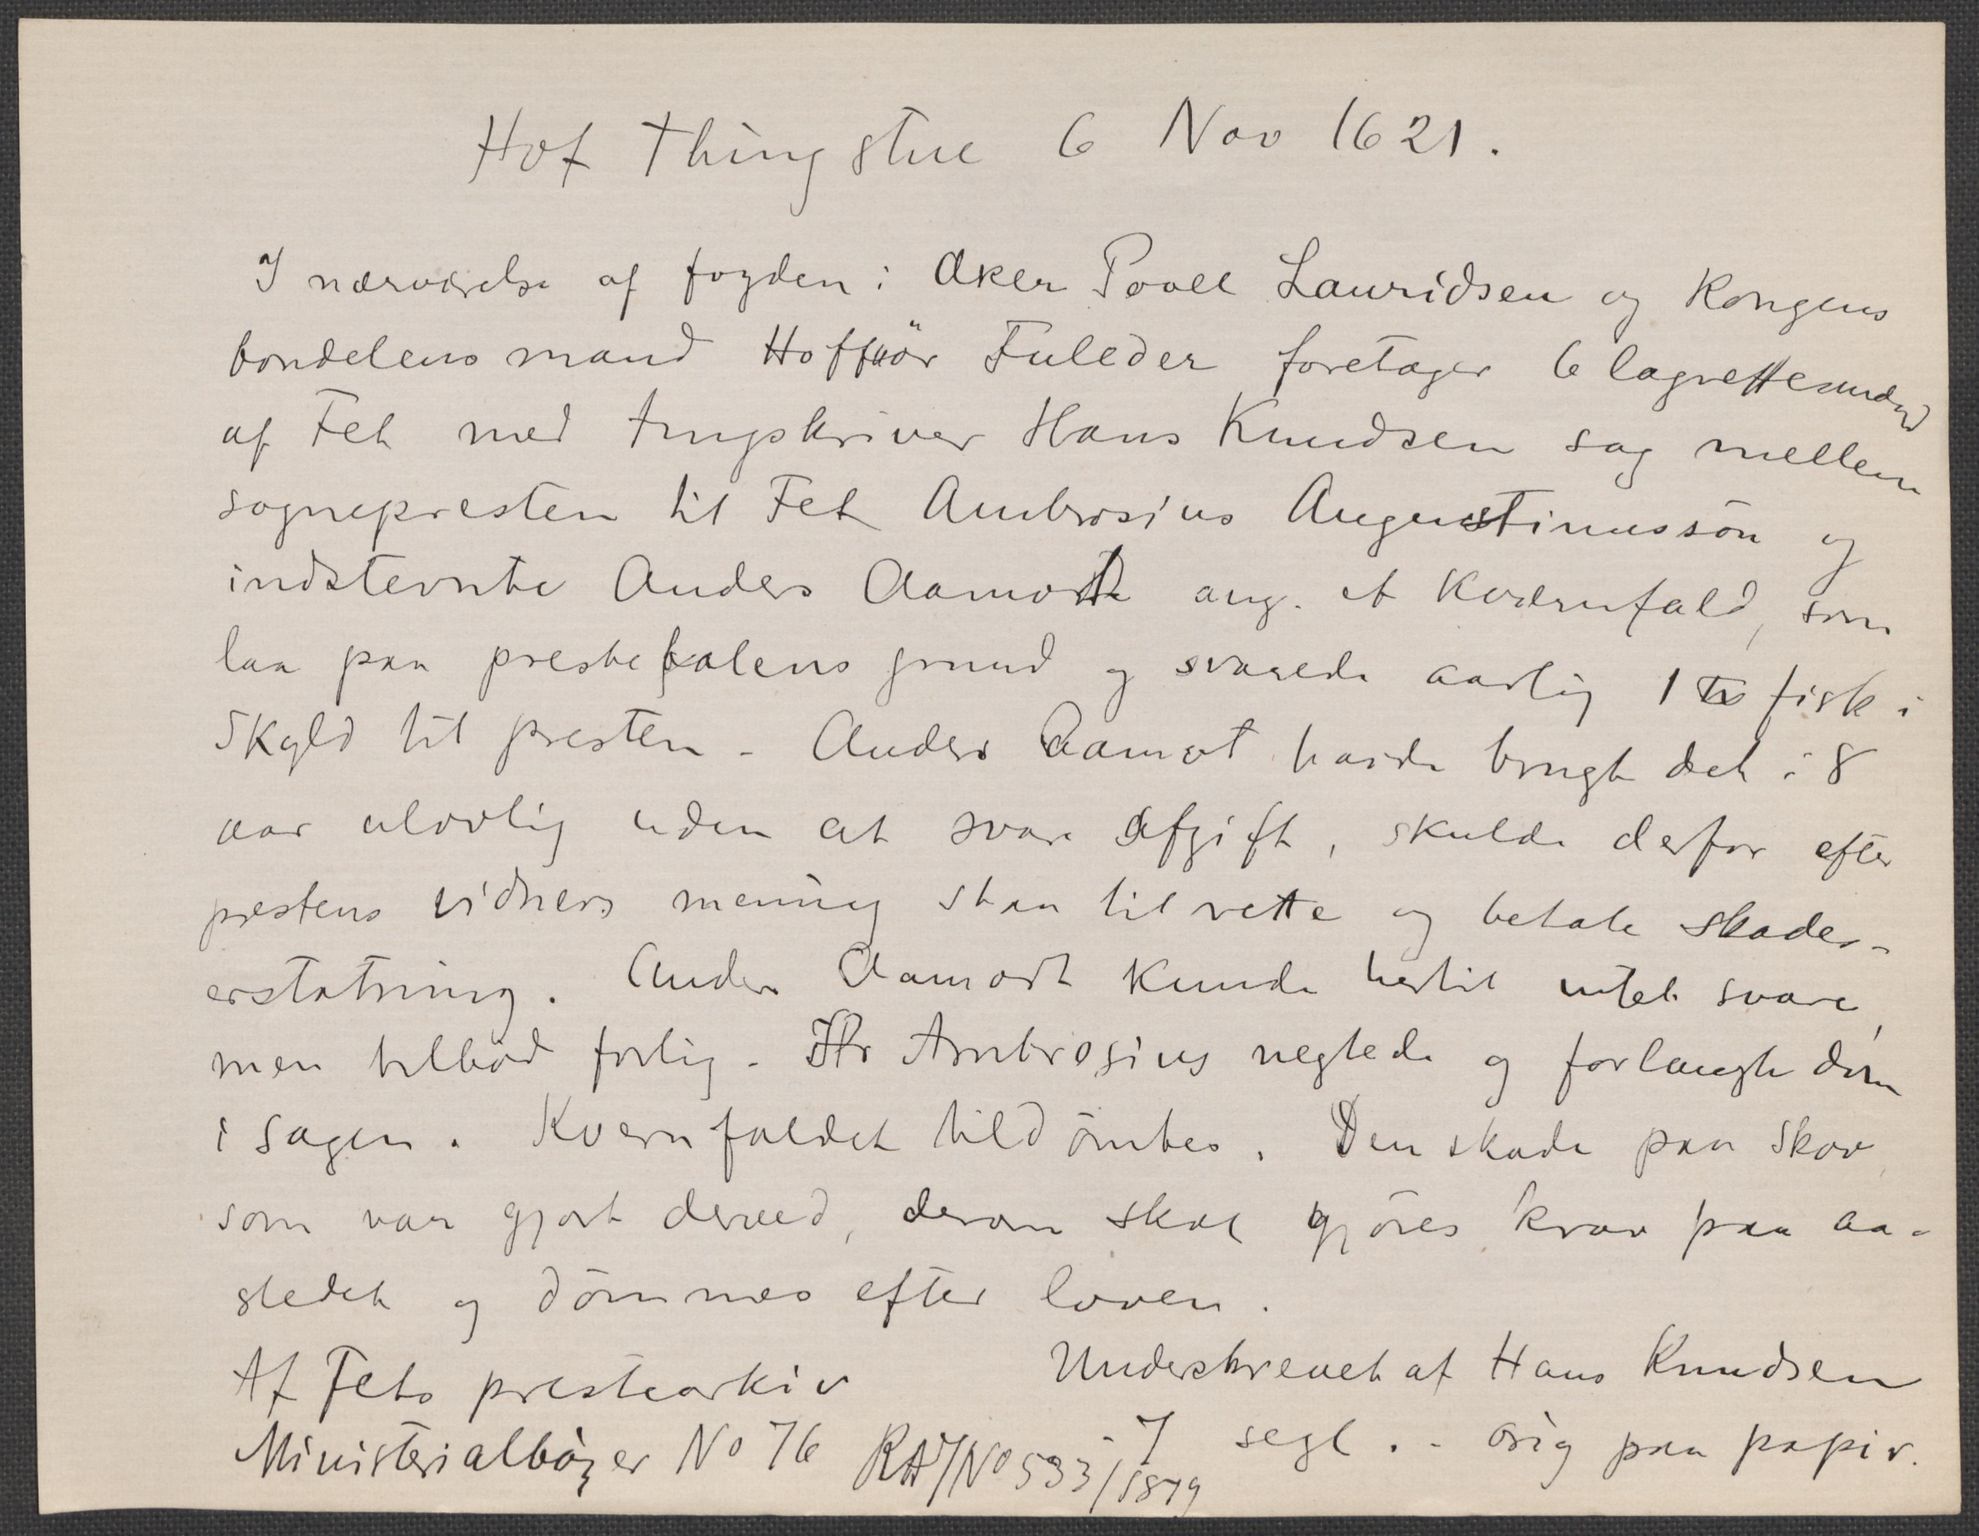 Hof Thingstue 6 Nov 1621.
I nærværelse af fogden i Aker Povel Lauridsen og Kongens
bondelensmand Hoffuör Fuleder foretager 6 lagrettesmænd
af Fet med tingskriver Hans Knudsen sag mellem
sognepresten til Fet Ambrosius Augustinussön og
indstevnte Anders Aamodt ang. et Kværnfald, som
laa paa prestebolens grund og svarede aarlig 1 fisk i
Skyld til presten - Anders Aamot havde brugt det i 8
aar ulovlig uden at svare Afgift, skulde derfor efter
prestens vidners mening staa til rette og betale skades-
erstatning. Anders Aamodt Kunde hertil intet svare,
men tilböd forlig - Hr Ambrosius negtede og forlangte dom
i sagen. Kvernfaldet tildömtes. Den skade paa Skov
som var gjort derved, derom skal gjöres krav paa aa-
stedet og dömmes efter loven.
Af Fets prestearkiv Underskrevet af Hans Knudsen
Ministerialböger No 76 RA/No 533/1879 - 7 segl. - orig paa papir.